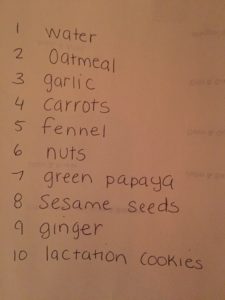 1 water
2 Oatmeal
3 garlic
4 carrots
5 fennel
6 nuts
7 green papaya
8 Sesame seeds
9 ginger
10 lactation cookies